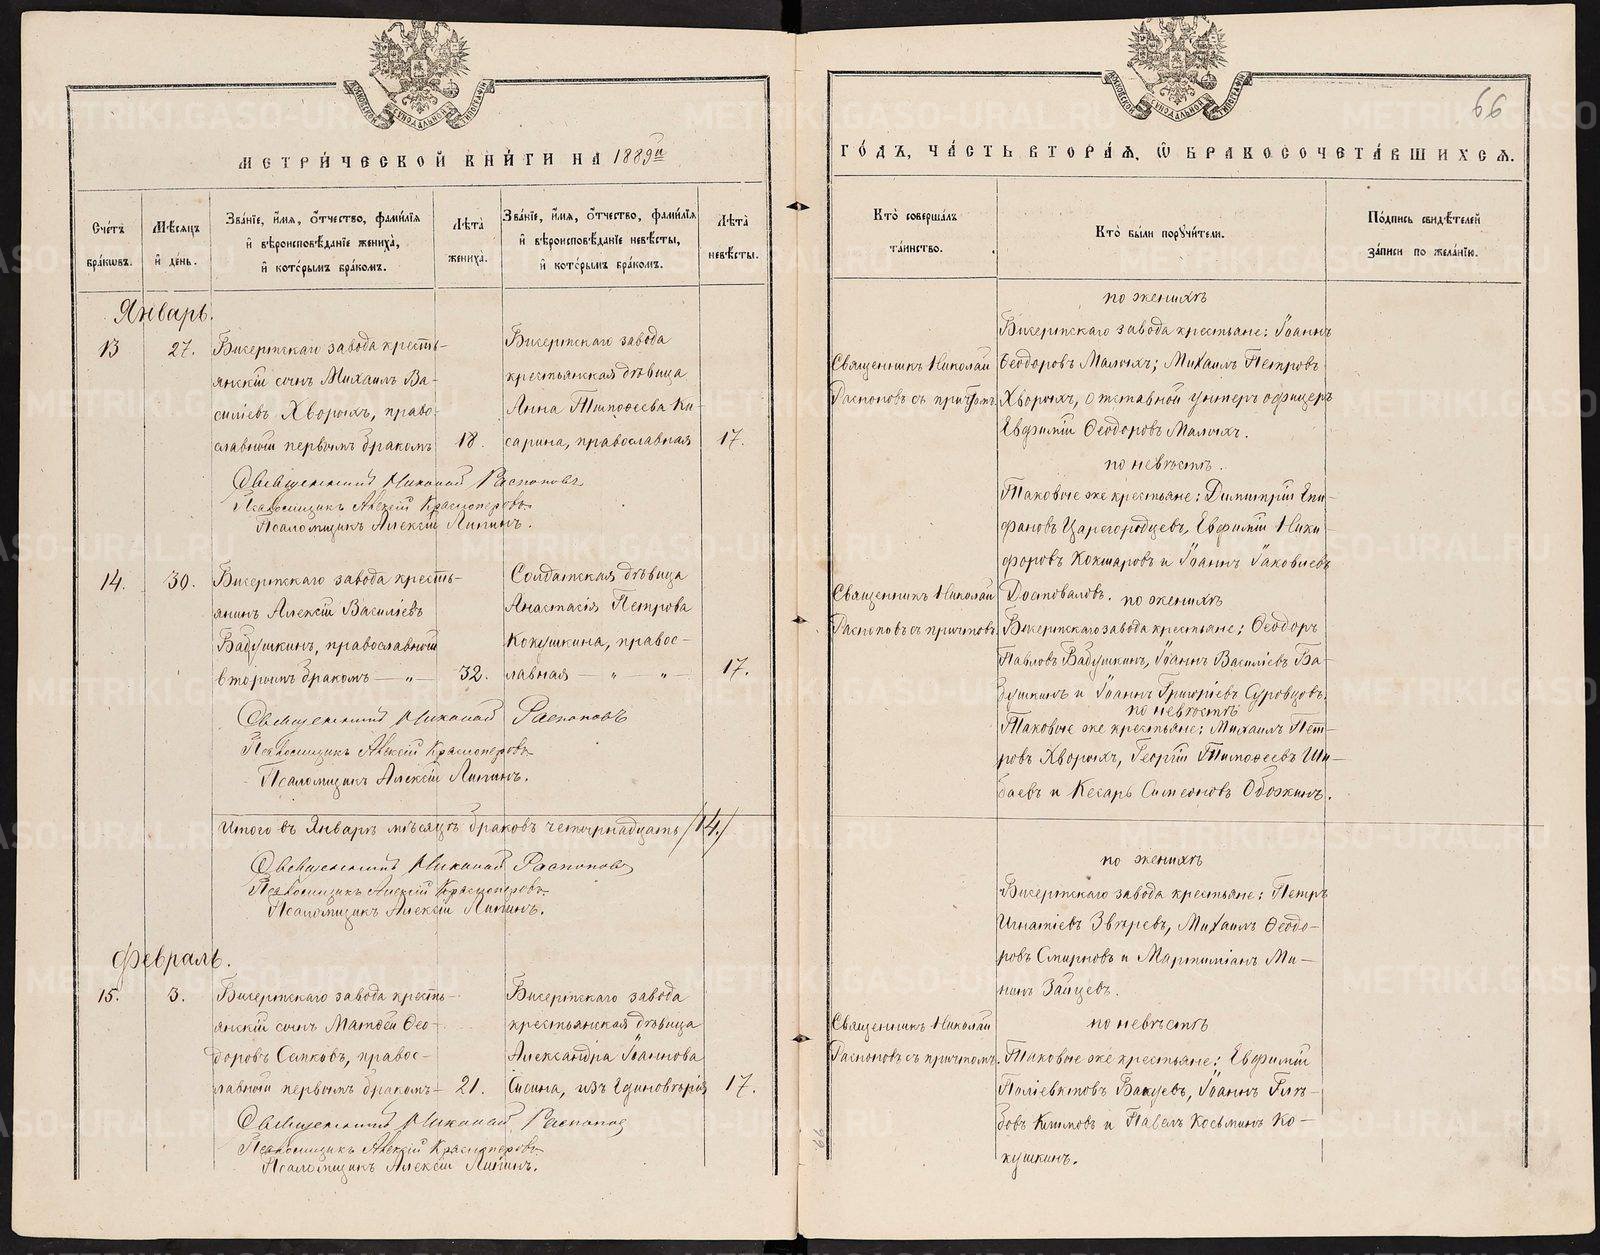 МЕТРИ́ЧЕСКОЙ КНИ́ГИ НА 1889й
Сче́тъ бра́кѡвъ.
Мѣ́сяцъ и҆ день.
Зва́нїе, и҆́мя, ѻ҆́тчество, фами́лїя и҆ вѣроисповѣ́данїе жениха̀, и҆ кото́рымъ бра́комъ.
Лѣта̀ жениха̀.
Зва́нїе, и҆́мя, ѻ҆́тчество, фами́лїя и҆ вѣроисповѣ́данїе невѣ́сты, и҆ кото́рымъ бра́комъ.
Лѣта̀ невѣ́сты.
Январь.
13
27.
Бисертскаго завода кресть-
янскій сынъ Михаилъ Ва-
силіевъ Хворыхъ, право-
славный первымъ бракомъ
18.
Бисертскаго завода
крестьянская дѣвица
Анна Тимоѳеева Ки-
сарина, православная
17.
Священникъ Николай Распоповъ
Псаломщикъ Алексій Красноперовъ
Псаломщикъ Алексій Липинъ.
14.
30.
Бисертскаго завода кресть-
янинъ Алексій Василіевъ
Бабушкинъ, православный
вторымъ бракомъ — „ —
32.
Солдатская дѣвица
Анастасія Петрова
Кокушкина, правос-
лавная — „ — „ —
17.
Священникъ Николай Распоповъ
Псаломщикъ Алексій Красноперовъ
Псаломщикъ Алексій Липинъ.
Итого въ Январѣ мѣсяцѣ браковъ четырнадцать /14./
Священникъ Николай Распоповъ
Псаломщикъ Алексій Красноперовъ
Псаломщикъ Алексій Липинъ.
Февраль.
15.
3.
Бисертскаго завода кресть-
янскій сынъ Матѳей Ѳео-
доровъ Сапковъ, правос-
лавный первымъ бракомъ
21.
Бисертскаго завода
крестьянская дѣвица
Александра Іоаннова
Сисина, изъ Единовѣрія
17.
Священникъ Николай Распоповъ
Псаломщикъ Алексій Красноперовъ
Псаломщикъ Алексій Липинъ.
66
ГО́ДЪ, ЧА́СТЬ ВТОРА́Я, Ѽ БРАКОСОЧЕТА́ВШИХСЯ.
Кто̀ соверша́лъ та́инство.
Кто̀ бы́ли пору҆чи́тели.
По́дпись свидѣ́телей за́писи по жела́нїю.
по женихѣ
Бисертскаго завода крестьяне: Іоаннъ
Ѳеодоровъ Малыхъ; Михаилъ Петровъ
Хворыхъ, отставной унтеръ офицеръ
Евфимій Ѳеодоровъ Малыхъ.
Священникъ Николай
Распоповъ съ причтомъ.
по невѣстѣ.
Таковые же крестьяне: Димитрій Епи-
фановъ Царегородцевъ, Евфимій Ники-
форовъ Кокшаровъ и Іоаннъ Іаковлевъ
Достоваловъ.
по женихѣ
Священникъ Николай
Распоповъ съ причтомъ.
Бисертскаго завода крестьяне: Ѳеодоръ
Павловъ Бабушкинъ, Іоаннъ Василіевъ Ба-
бушкинъ и Іоаннъ Григоріевъ Суровцовъ.
по невѣстѣ
Таковые же крестьяне: Михаилъ Пет-
ровъ Хворыхъ, Георгій Тимоѳеевъ Ши-
баевъ и Кесарь Симеоновъ Обожинъ.
по женихѣ
Бисертскаго завода крестьяне: Петръ
Игнатіевъ Звѣревъ, Михаилъ Ѳеодо-
ровъ Смирновъ и Мартиніанъ Ми-
нинъ Зайцевъ.
по невѣстѣ
Священникъ Николай
Распоповъ съ причтомъ.
Таковые же крестьяне: Евфимій
Поліевктовъ Бакуевъ, Іоаннъ Глѣ-
бовъ Климовъ и Павелъ Косьминъ Ко-
кушкинъ.
METRIKI.GASO-URAL.RU